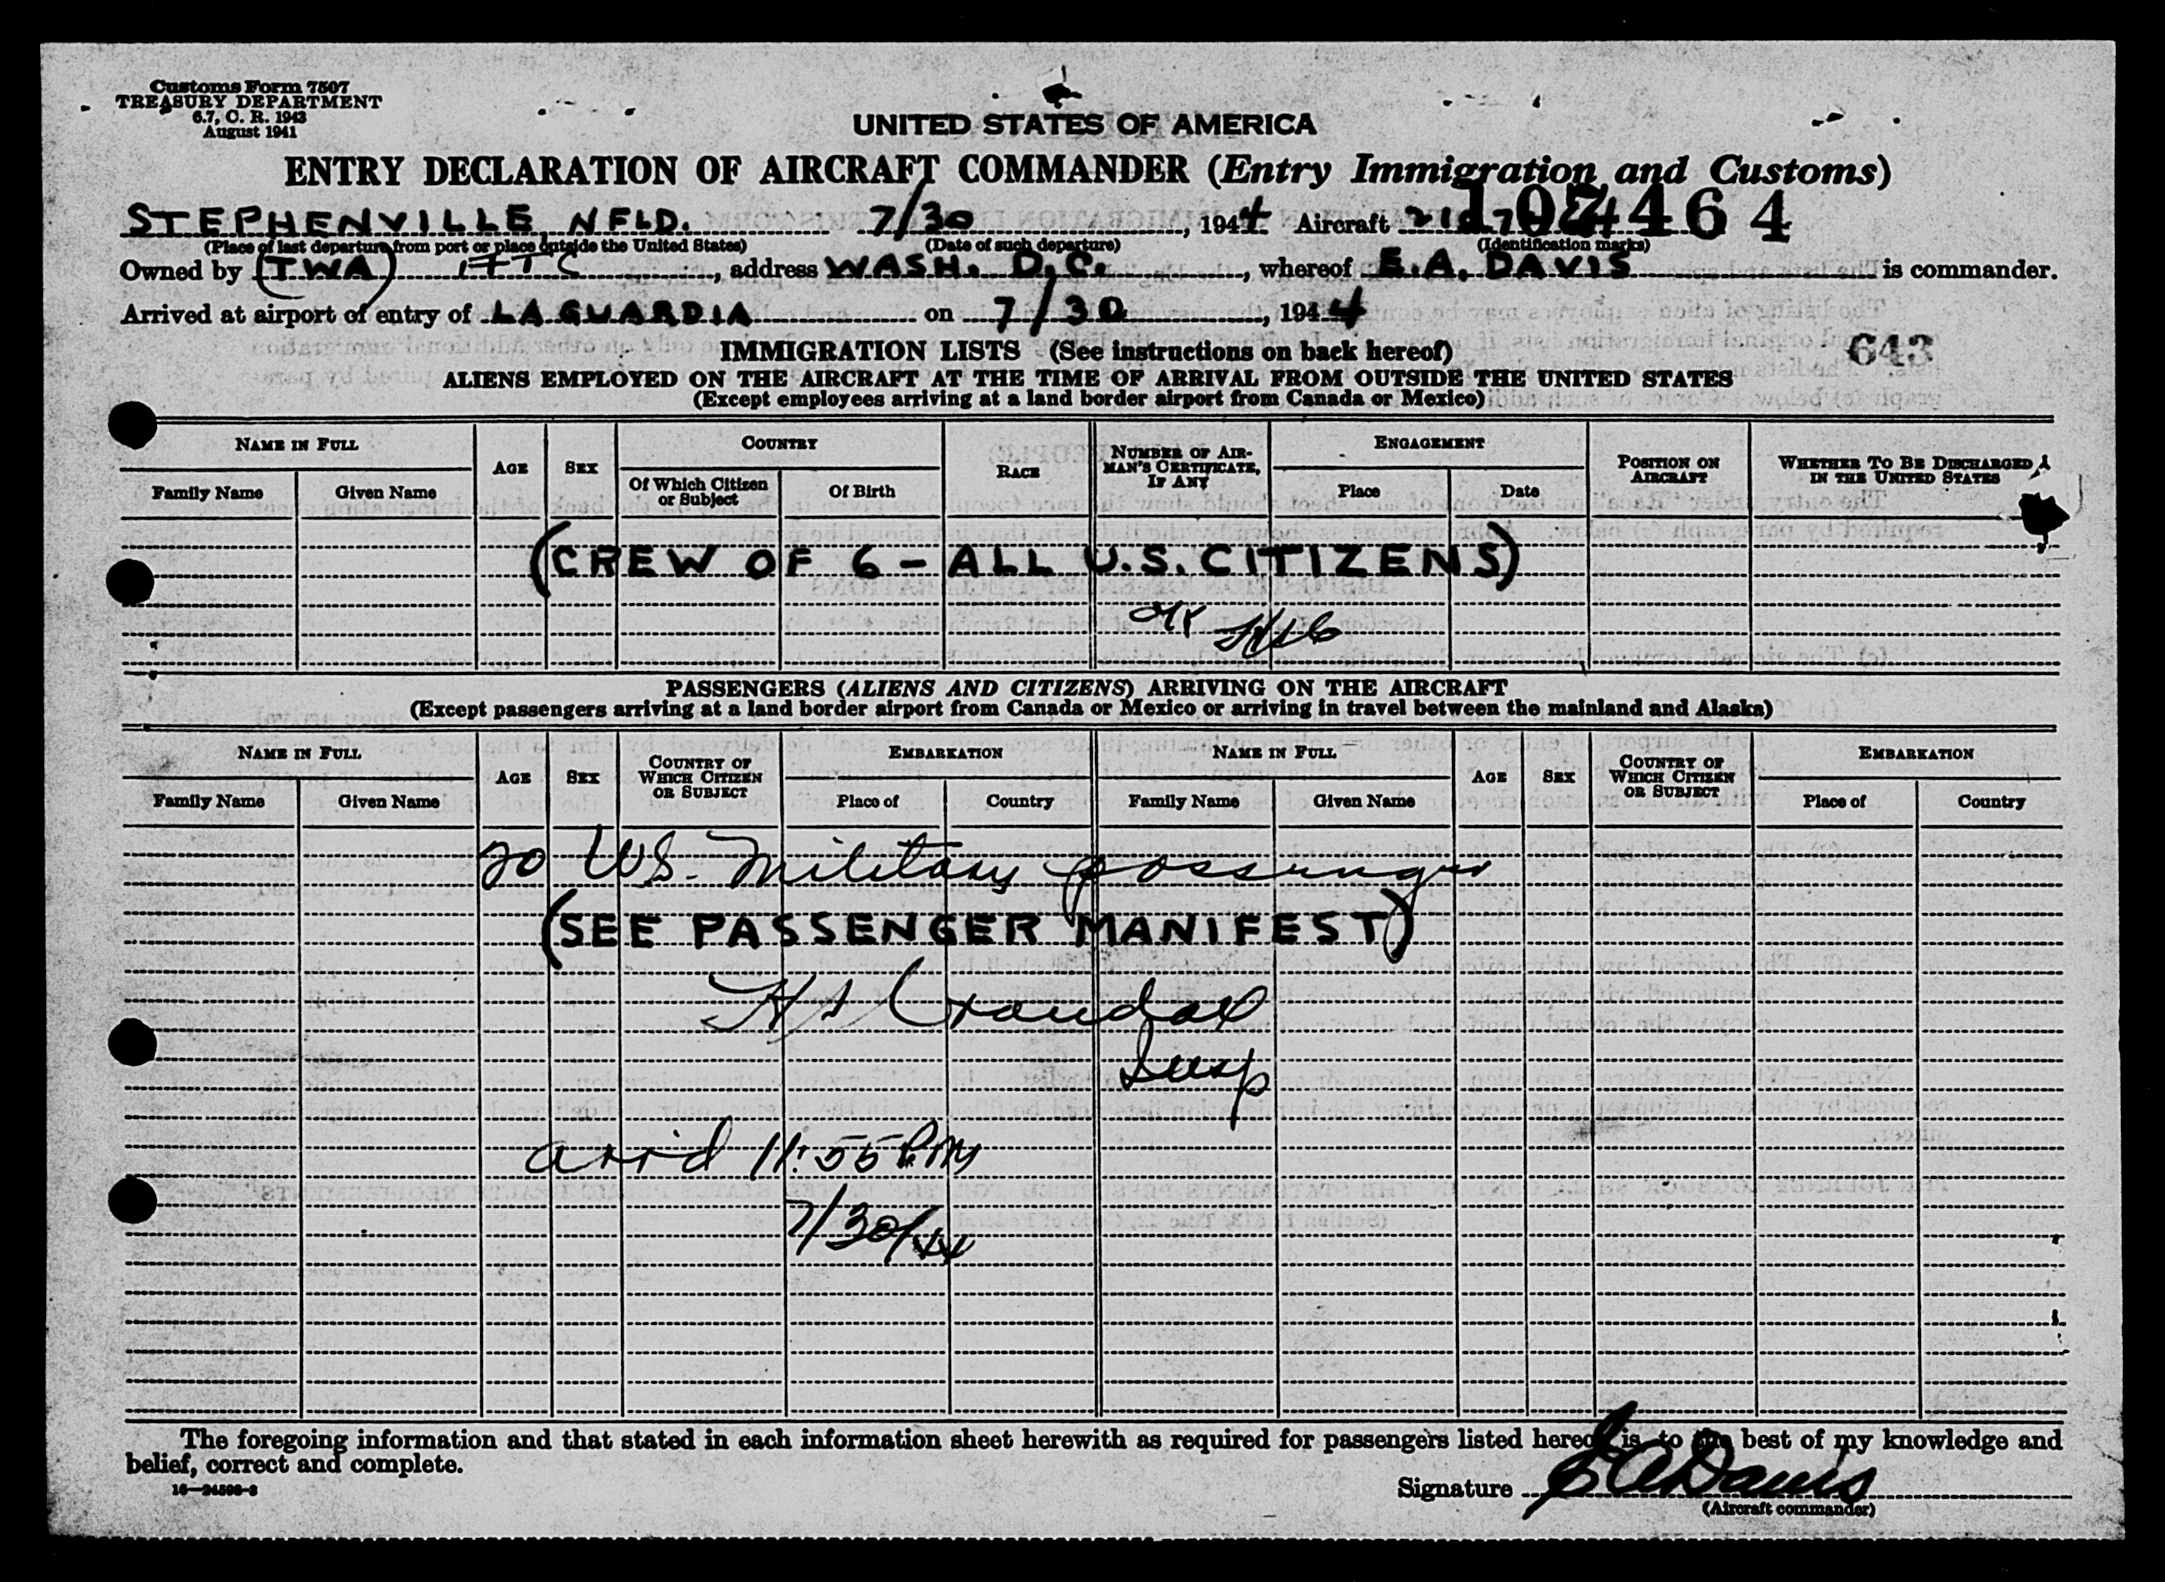 Customs Form 7507
TREASURY DEPARTMENT
6.7, C. R. 1943
August 1941
UNITED STATES OF AMERICA
ENTRY DECLARATION OF AIRCRAFT COMMANDER (Entry Immigration and Customs)
STEPHENVILLE, NFLD. 7/30, 1944 Aircraft
464
(Place of last departure from port or place outside the United States) (Date of such departure) (Identification marks)
Owned by (TWA), address WASH. D.C., whereof E.A. DAVIS is commander.
Arrived at airport of entry of LA GUARDIA on 7/30, 1944
643
IMMIGRATION LISTS (See instructions on back hereof)
ALIENS EMPLOYED ON THE AIRCRAFT AT THE TIME OF ARRIVAL FROM OUTSIDE THE UNITED STATES
(Except employees arriving at a land border airport from Canada or Mexico)
NAME IN FULL AGE SEX COUNTRY RACE NUMBER OF AIRMAN'S CERTIFICATE, IF ANY ENGAGEMENT POSITION ON AIRCRAFT WHETHER TO BE DISCHARGED IN THE UNITED STATES
Family Name Given Name Of Which Citizen or Subject Of Birth Place Date
(CREW OF 6 - ALL U.S. CITIZENS)
PASSENGERS (ALIENS AND CITIZENS) ARRIVING ON THE AIRCRAFT
(Except passengers arriving at a land border airport from Canada or Mexico or arriving in travel between the mainland and Alaska)
NAME IN FULL AGE SEX COUNTRY OF WHICH CITIZEN OR SUBJECT EMBARKATION NAME IN FULL AGE SEX COUNTRY OF WHICH CITIZEN OR SUBJECT EMBARKATION
Family Name Given Name Place of Country Family Name Given Name Place of Country
20 US. military passenger
(SEE PASSENGER MANIFEST)
Crandall
Insp
arrid 11:55 PM
7/30/44
The foregoing information and that stated in each information sheet herewith as required for passengers listed hereof is to the best of my knowledge and
belief, correct and complete.
16—24598-2
Signature E A Davis
(Aircraft commander)